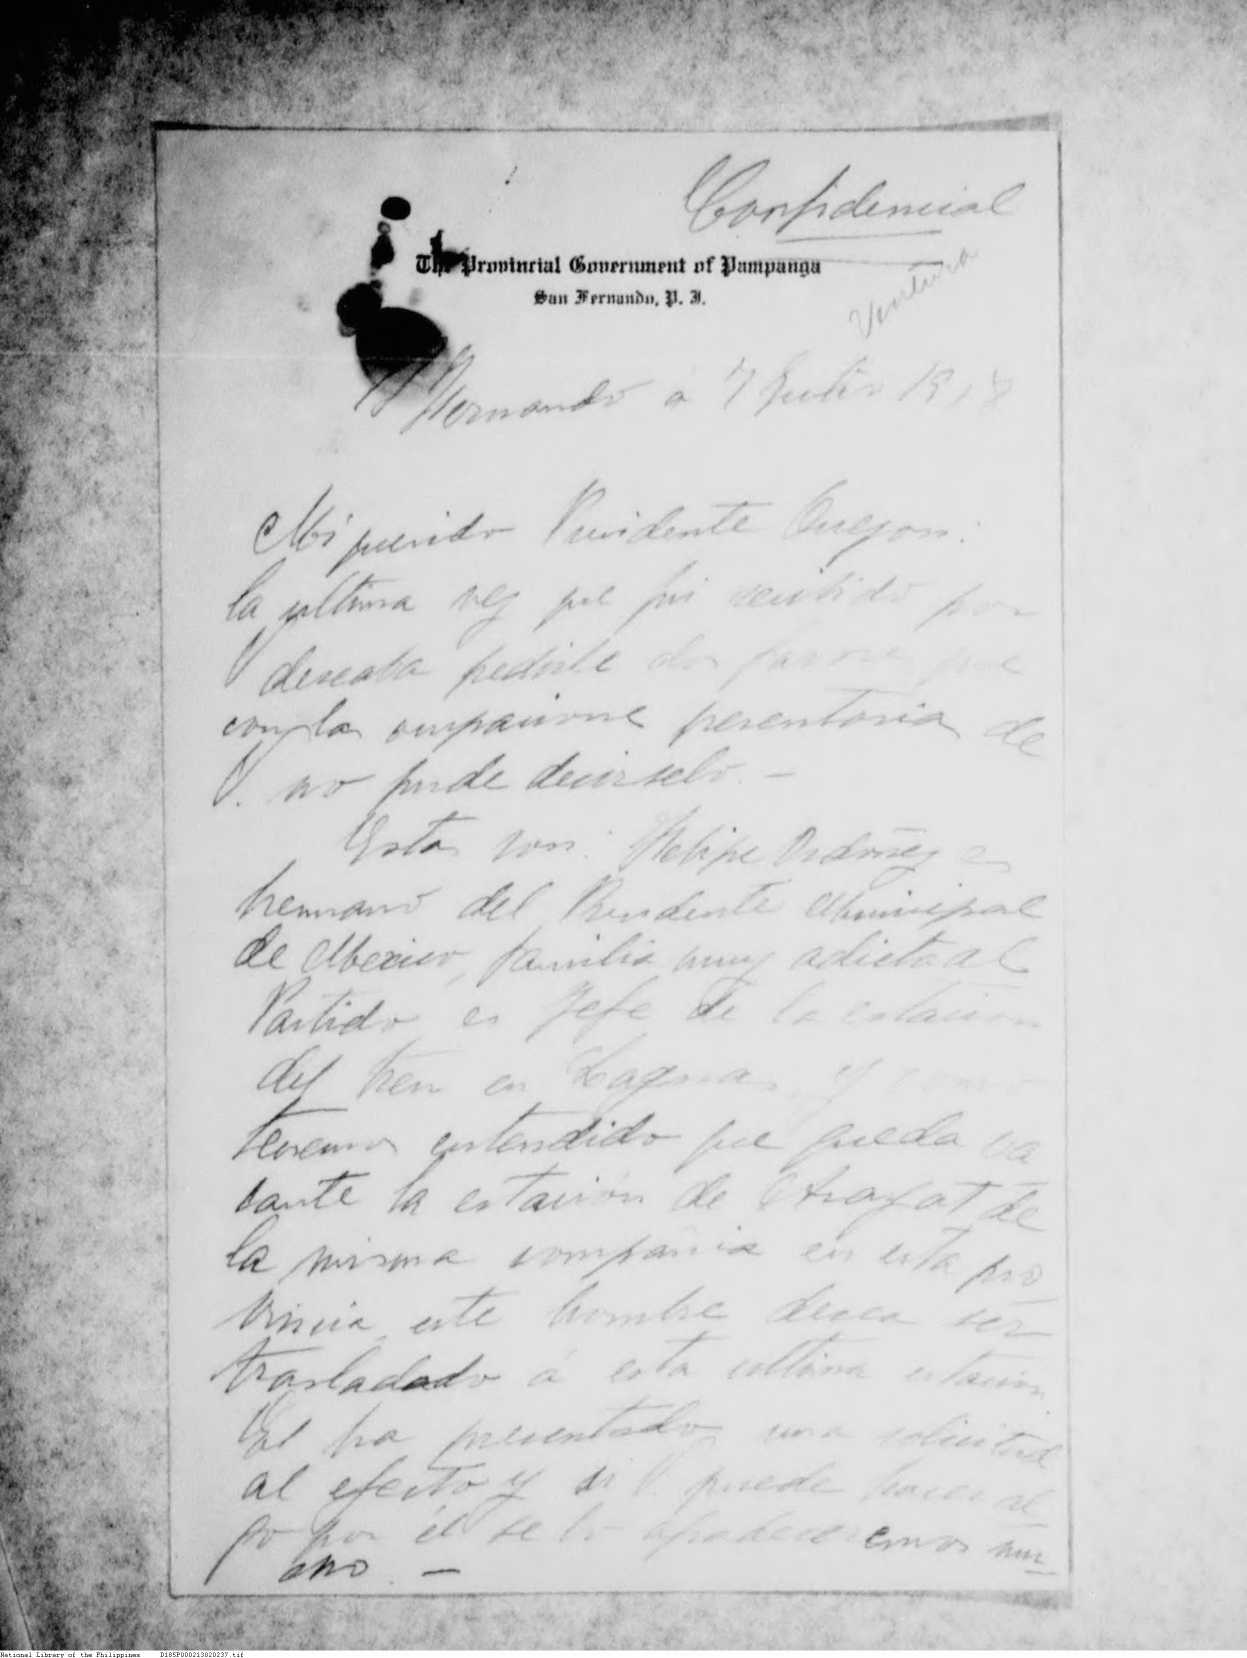 Confidencial
The Provincial Government of Pampanga
San Fernando, P. I.
Ventura
S Fernando a 7 Julio 1918
Mi querido Presidente Quezon:
la ultima vez que fui recibido por
V deseaba pedirle dos favores que
con las ocupaciones perentorias de
V. no pude decirselo. —
Estos son: Felipe Ordoñez es
hermano del Presidente Municipal
de Mexico, familia muy adicta al
Partido es Jefe de la estacion
del tren en Laguna, y como
tenemos entendido que queda va
cante la estación de Arayat de
la misma compañia en esta pro
vincia, este hombre desea ser
trasladado á esta ultima estacion
El ha presentado una solicitud
al efecto y si V. puede hacer al
go por él se lo agradeceremos mu
cho. —
National Library of the Philippines D185P000213020237.tif